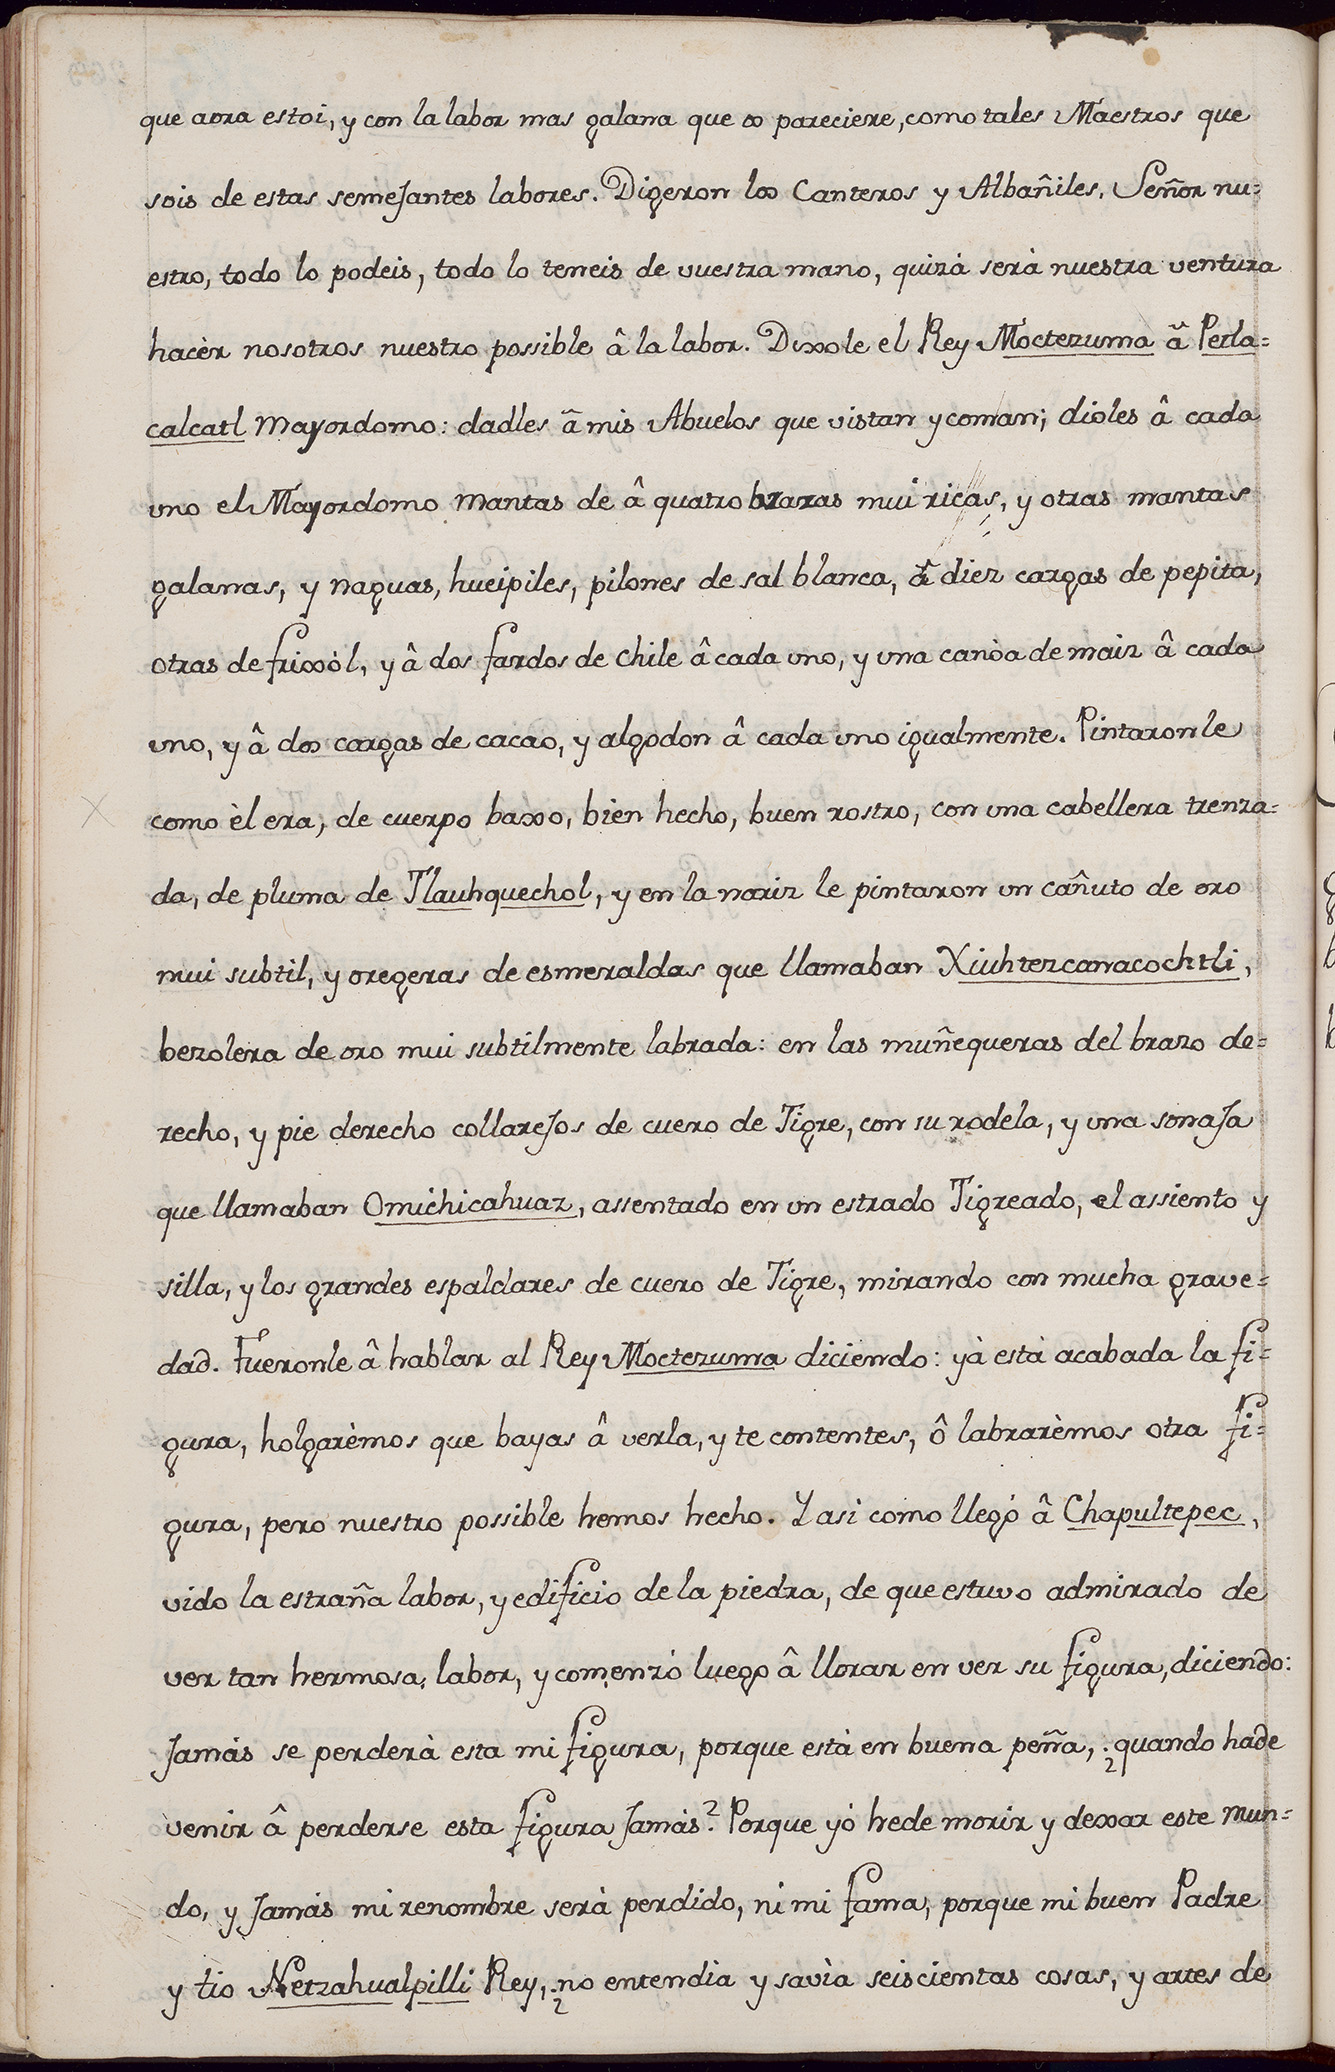 que aora estoi, y con la labor mas galana que os pareciere, como tales Maestros que
sois de estas semejantes labores. Digeron los Canteros y Albañiles, Señor nu=
estro, todo lo podeis, todo lo teneis de vuestra mano, quizà serà nuestra ventura
hacèr nosotros nuestro possible â la labor. Dixole el Rey Moctezuma â Petla=
calcatl Mayordomo: dadles â mis Abuelos que vistan y coman; dioles â cada
uno el Mayordomo mantas de â quatro brazas mui ricas, y otras mantas
galanas, y naguas, hueipiles, pilones de sal blanca, â diez cargas de pepita,
otras de frixòl, y â dos fardos de chile â cada uno, y una canòa de maiz â cada
uno, y â dos cargas de cacao, y algodon â cada uno igualmente. Pintaronle
como èl era, de cuerpo baxo, bien hecho, buen rostro, con una cabellera trenza=
da, de pluma de Tlauhquechol, y en la nariz le pintaron un cañuto de oro
mui subtil, y oregeras de esmeraldas que llamaban Xiuhtezcanacochtli,
bezolera de oro mui subtilmente labrada: en las muñequeras del brazo de=
recho, y pie derecho collarejos de cuero de Tigre, con su rodela, y una sonaja
que llamaban Omichicahuaz, assentado en un estrado Tigreado, el assiento y
silla, y los grandes espaldares de cuero de Tigre, mirando con mucha grave=
dad. Fueronle â hablar al Rey Moctezuma diciendo: yà està acabada la fi=
gura, holgarèmos que bayas â verla, y te contentes, ô labrarèmos otra fi=
gura, pero nuestro possible hemos hecho. Y asi como llegó â Chapultepec,
vido la estraña labor, y edificio de la piedra, de que estuvo admirado de
ver tan hermosa labor, y comenzó luego â llorar en ver su figura, diciendo:
Jamás se perderà esta mi figura, porque està en buena peña, ¿quando hade
venir â perderse esta figura Jamás? Porque yó hede morir y dexar este mun=
do, y Jamás mi renombre serà perdido, ni mi fama, porque mi buen Padre
y tio Netzahualpilli Rey, ¿no entendia y savìa seiscientas cosas, y artes de